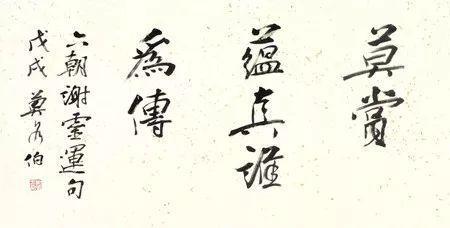 莫賞
蘊真誰
爲傳
六朝謝靈運句
戊戌 伯